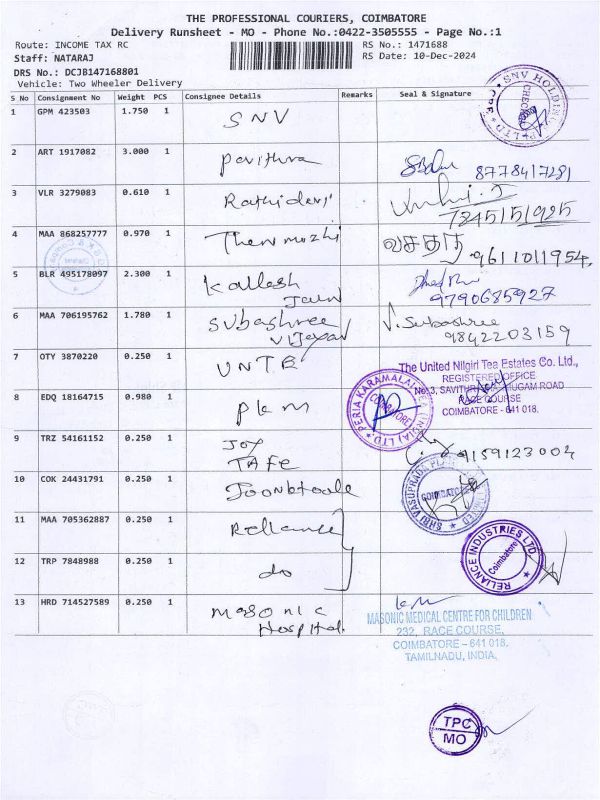 THE PROFESSIONAL COURIERS, COIMBATORE
Delivery Runsheet - MO - Phone No.:0422-3505555 - Page No.:1
Route: INCOME TAX RC
RS No.: 1471688
Staff: NATARAJ
RS Date: 10-Dec-2024
DRS No.: DCJB147168801
Vehicle: Two Wheeler Delivery
S No Consignment No Weight PCS Consignee Details Remarks Seal & Signature
1 GPM 423503 1.750 1 SNV
SNV HOLDIN
2 ART 1917082 3.000 1 pavithra 8778417281
3 VLR 3279083 0.610 1 Rathidevi
7845151925
4 MAA 868257777 0.970 1 Thenmozhi வசந்தி 9611011954
5 BLR 495178097 2.300 1 Kailash Jain
9790685927
6 MAA 706195762 1.780 1 Subashree Vijayan V. Subashree
9842203159
7 OTY 3870220 0.250 1 UNTE
The United Nilgiri Tea Estates Co. Ltd.,
REGISTERED OFFICE
No.3, SAVITHRI SHANMUGAM ROAD
RACE COURSE
COIMBATORE - 641 018.
8 EDQ 18164715 0.980 1 pkm
PERIA KARAMALAI TEA
COIMBATORE
9 TRZ 54161152 0.250 1 Joy
TAFE
9159123004
10 COK 24431791 0.250 1
COIMBATORE
11 MAA 705362887 0.250 1 Reliance
RELIANCE INDUSTRIES LTD
Coimbatore
12 TRP 7848988 0.250 1 do
13 HRD 714527589 0.250 1 Masonic
Hospital.
MASONIC MEDICAL CENTRE FOR CHILDREN
232, RACE COURSE,
COIMBATORE - 641 018.
TAMILNADU, INDIA.
TPC
MO